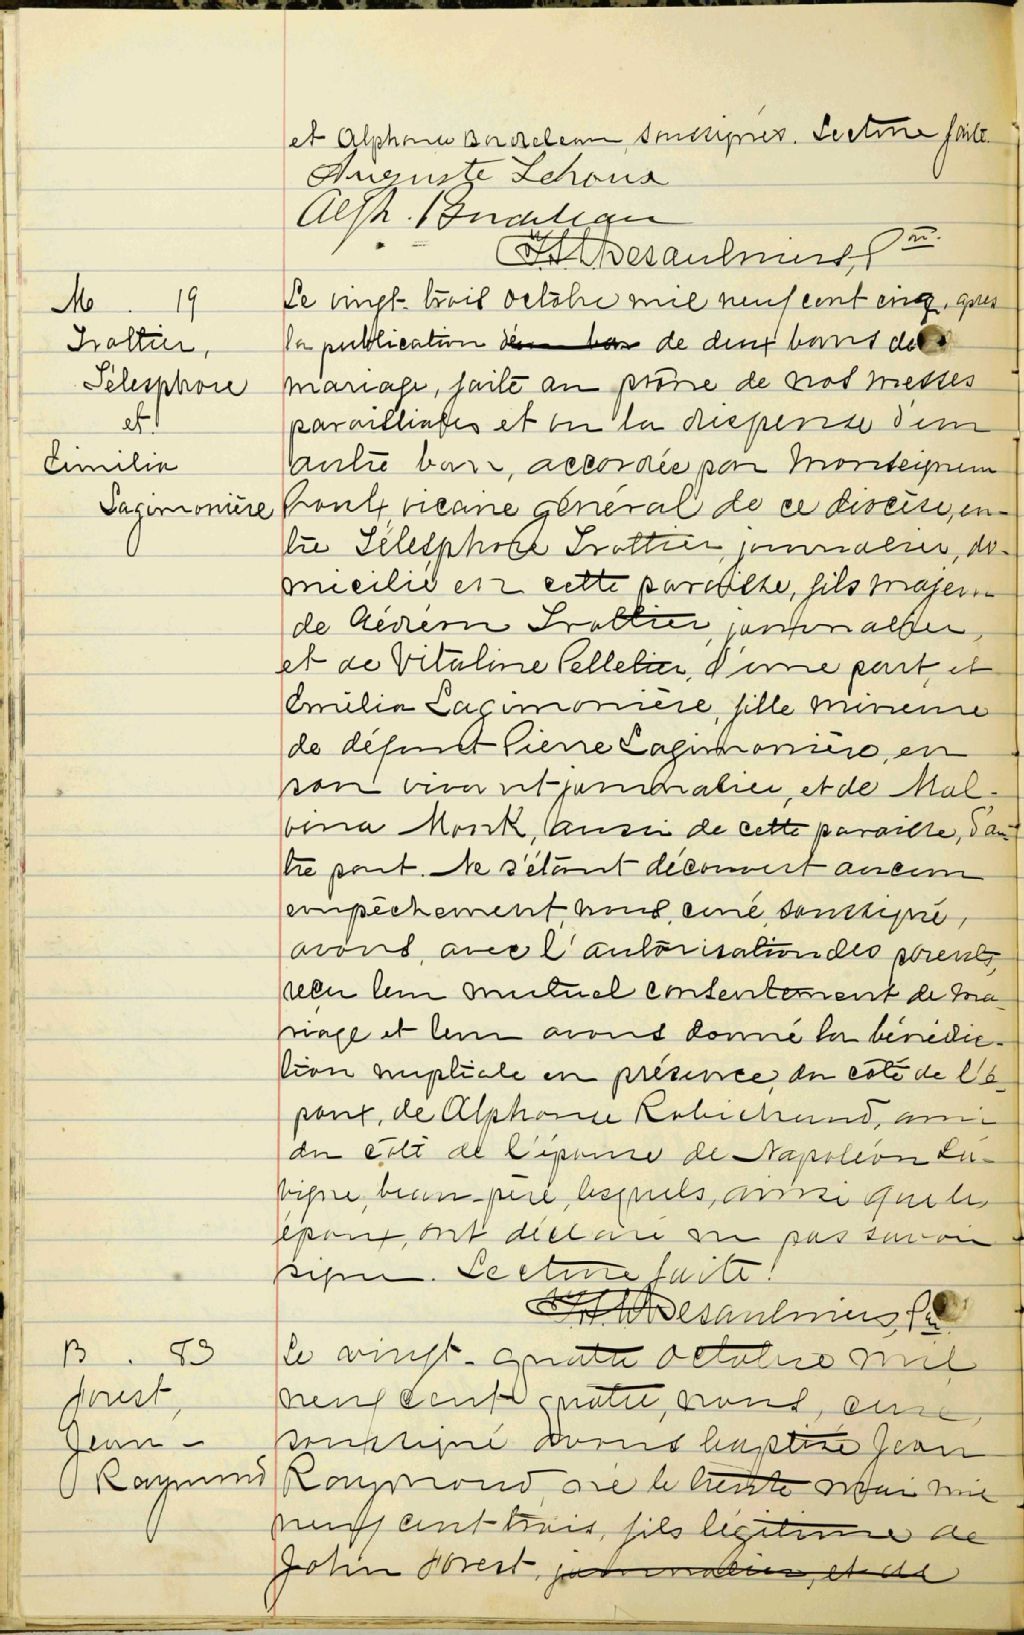 et Alphonse Bourdeleau, soussignés. Lecture faite.
Auguste Lehoux
Alph. Bourdeleau
Desaulniers, Ptre
M. 19
Trottier,
Télesphore
et
Emilia
Lagimonière
Le vingt-trois octobre mil neuf cent cinq, après
la publication de deux bans de
mariage, faite au prône de nos messes
paroissiales et vu la dispense d'un
autre ban, accordée par Monseigneur
vicaire général de ce diocèse, en-
tre Télesphore Trottier, journalier, do-
micilié en cette paroisse, fils majeur
de Trottier, journalier,
et de Vitaline Pelletier, d'une part, et
Emilia Lagimonière, fille mineure
de défunt Pierre Lagimonière, en
son vivant journalier, et de Mal-
vina Monk, aussi de cette paroisse, d'au-
tre part. Ne s'étant découvert aucun
empêchement, nous, curé, soussigné,
avons, avec l'autorisation des parents,
reçu leur mutuel consentement de ma-
riage et leur avons donné la bénédic-
tion nuptiale en présence, du côté de l'é-
poux, de Alphonse Robichaud, ami
du côté de l'épouse de Napoléon La-
vigne, beau-père, lesquels, ainsi que les
époux, ont déclaré ne pas savoir
signer. Lecture faite.
Desaulniers, Ptre
B. 83
Forest,
Jean-
Raymond
Le vingt-quatre octobre mil
neuf cent quatre, nous, curé,
soussigné avons baptisé Jean
Raymond, né le trente mai mil
neuf cent trois, fils légitime de
John Forest, journalier, et de